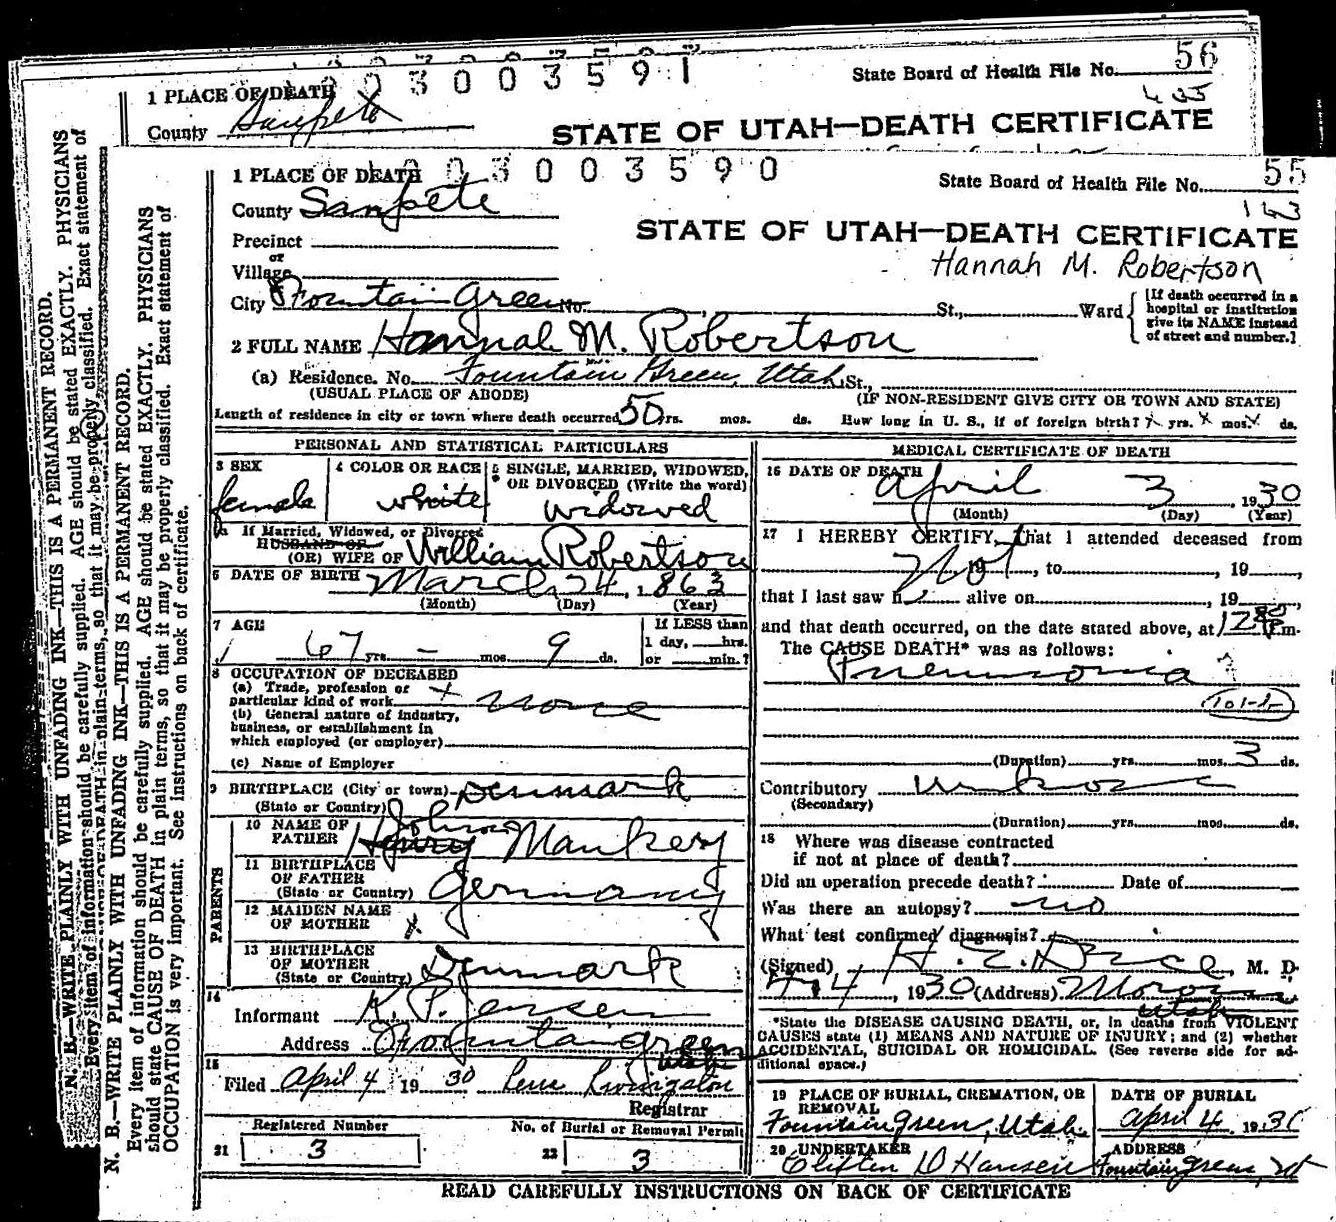 003003591
State Board of Health File No. 56
1 PLACE OF DEATH
County Sanpete
STATE OF UTAH—DEATH CERTIFICATE
N. B.—WRITE PLAINLY WITH UNFADING INK—THIS IS A PERMANENT RECORD.
Every item of information should be carefully supplied. AGE should be stated EXACTLY. PHYSICIANS
so that it may be properly classified. Exact statement of
1 PLACE OF DEATH 003003590
State Board of Health File No. 55
143
County Sanpete
STATE OF UTAH—DEATH CERTIFICATE
Precinct
Hannah M. Robertson
or
Village
City Fountain Green No. St., Ward
[If death occurred in a
hospital or institution
give its NAME instead
of street and number.]
2 FULL NAME Hannah M. Robertson
(a) Residence. No. Fountain Green, Utah St.,
(USUAL PLACE OF ABODE) (IF NON-RESIDENT GIVE CITY OR TOWN AND STATE)
Length of residence in city or town where death occurred 50 yrs. mos. ds. How long in U. S., if of foreign birth? yrs. mos. ds.
PERSONAL AND STATISTICAL PARTICULARS
3 SEX
female
4 COLOR OR RACE
white
5 SINGLE, MARRIED, WIDOWED,
OR DIVORCED (Write the word)
widowed
If Married, Widowed, or Divorced
HUSBAND OF
(OR) WIFE OF William Robertson
6 DATE OF BIRTH March 24, 1863
(Month) (Day) (Year)
7 AGE
67 yrs. - mos. 9 ds.
If LESS than
1 day, hrs.
or min.?
8 OCCUPATION OF DECEASED
(a) Trade, profession or
particular kind of work none
(b) General nature of industry,
business, or establishment in
which employed (or employer)
(c) Name of Employer
9 BIRTHPLACE (City or town) Denmark
(State or Country)
PARENTS
10 NAME OF
FATHER John Henry Mankey
11 BIRTHPLACE
OF FATHER
(State or Country) Germany
12 MAIDEN NAME
OF MOTHER
13 BIRTHPLACE
OF MOTHER
(State or Country) Denmark
14
Informant K. P. Jensen
Address Fountain Green
Utah
15
Filed April 4 1930 Lene Livingston
Registrar
Registered Number
21 3
No. of Burial or Removal Permit
22 3
MEDICAL CERTIFICATE OF DEATH
16 DATE OF DEATH
April 3, 1930
(Month) (Day) (Year)
17 I HEREBY CERTIFY, that I attended deceased from
Not 19, to, 19,
that I last saw h alive on, 19,
and that death occurred, on the date stated above, at m.
The CAUSE DEATH* was as follows:
Pneumonia
(Duration) yrs. mos. 3 ds.
Contributory unknown
(Secondary)
(Duration) yrs. mos. ds.
18 Where was disease contracted
if not at place of death?
Did an operation precede death? Date of
Was there an autopsy? no
What test confirmed diagnosis?
(Signed), M. D.
4-4, 1930 (Address) Moroni
Utah
*State the DISEASE CAUSING DEATH, or, in deaths from VIOLENT
CAUSES state (1) MEANS AND NATURE OF INJURY; and (2) whether
ACCIDENTAL, SUICIDAL OR HOMICIDAL. (See reverse side for ad-
ditional space.)
19 PLACE OF BURIAL, CREMATION, OR
REMOVAL
Fountain Green, Utah.
DATE OF BURIAL
April 4, 1930
20 UNDERTAKER
Cliften D Hansen
ADDRESS
Fountain Green, Ut
READ CAREFULLY INSTRUCTIONS ON BACK OF CERTIFICATE
N. B.—WRITE PLAINLY WITH UNFADING INK—THIS IS A PERMANENT RECORD.
Every item of information should be carefully supplied. AGE should be stated EXACTLY. PHYSICIANS
should state CAUSE OF DEATH in plain terms, so that it may be properly classified. Exact statement of
OCCUPATION is very important. See instructions on back of certificate.